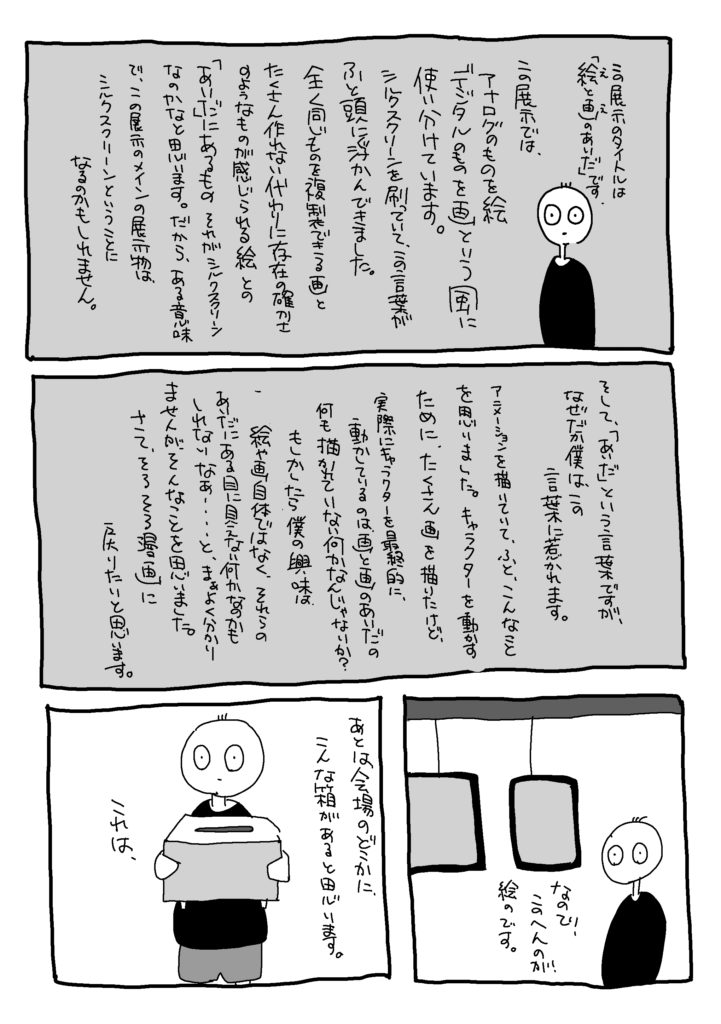 この展示のタイトルは
「絵(え)と画(え)のあいだ」です。
この展示では、
アナログのものを絵
デジタルのものを画という風に
使い分けています。
シルクスクリーンを刷っていて、この言葉が
ふと頭に浮かんできました。
全く同じものを複製できる画と
たくさん作れない代わりに存在の確かさ
のようなものが感じられる絵との
「あいだ」にあるもの それがシルクスクリーン
なのかなと思います。だから、ある意味
で、この展示のメインの展示物は、
シルクスクリーンということに
なるのかもしれません。
そして、「あいだ」という言葉ですが、
なぜだか僕は、この
言葉に惹かれます。
アニメーションを描いていて、ふと、こんなこと
を思いました。キャラクターを動かす
ために、たくさん画を描りたけど、
実際にキャラクターを最終的に、
動かしているのは画と画のあいだの
何も描かれていない何かなんじゃないか?
もしかしたら僕の興味は、
絵や画自体ではなく、それらの
あいだにある目に見えない何かなのかも
しれないなぁ・・・・と、まぁよく分かり
ませんが、そんなことを思いました。
さて、そろそろ漫画に
戻りたいと思います。
なので、
このへんのが、
絵のです。
あとは会場のどこかに、
こんな箱があると思います。
これは、